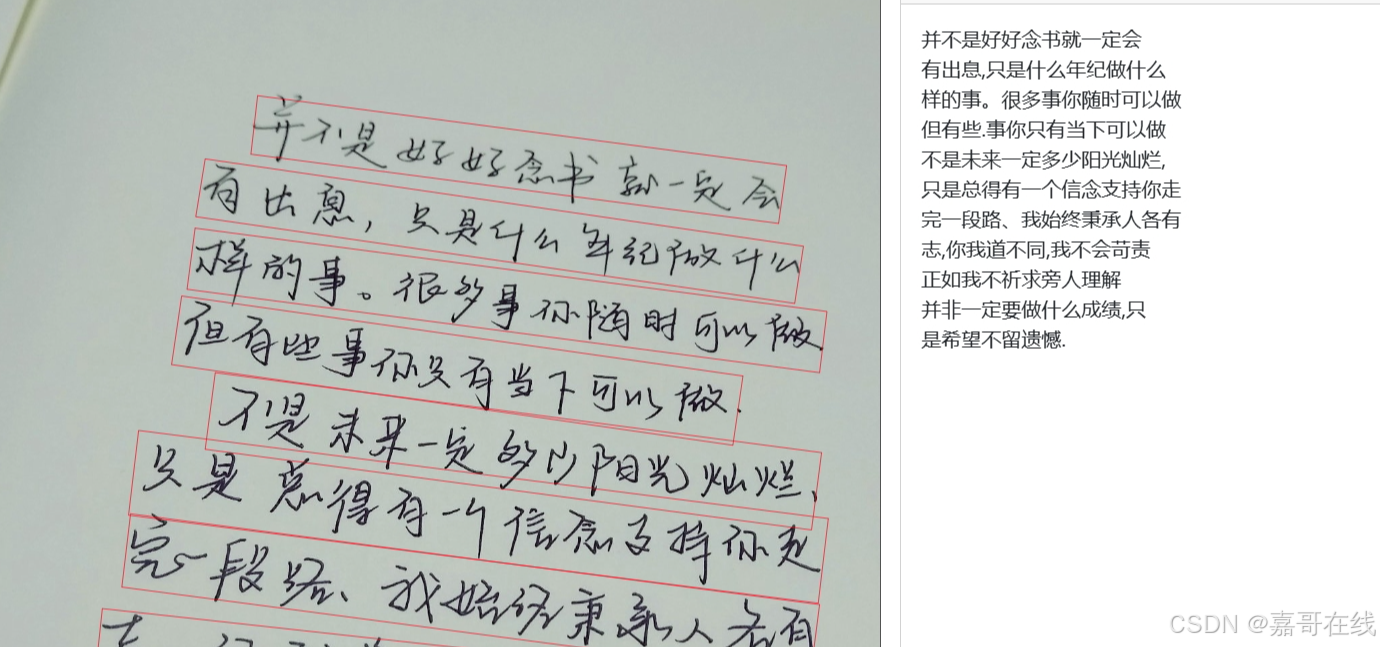 并不是好好念书就一定会
有出息,只是什么年纪做什么
样的事。很多事你随时可以做
但有些事你只有当下可以做.
不是未来一定多少阳光灿烂、
只是总得有一个信念支持你走
完一段路、我始终秉承人各有
并不是好好念书就一定会
有出息,只是什么年纪做什么
样的事。很多事你随时可以做
但有些.事你只有当下可以做
不是未来一定多少阳光灿烂,
只是总得有一个信念支持你走
完一段路、我始终秉承人各有
志,你我道不同,我不会苛责
正如我不祈求旁人理解
并非一定要做什么成绩,只
是希望不留遗憾.
CSDN @嘉哥在线